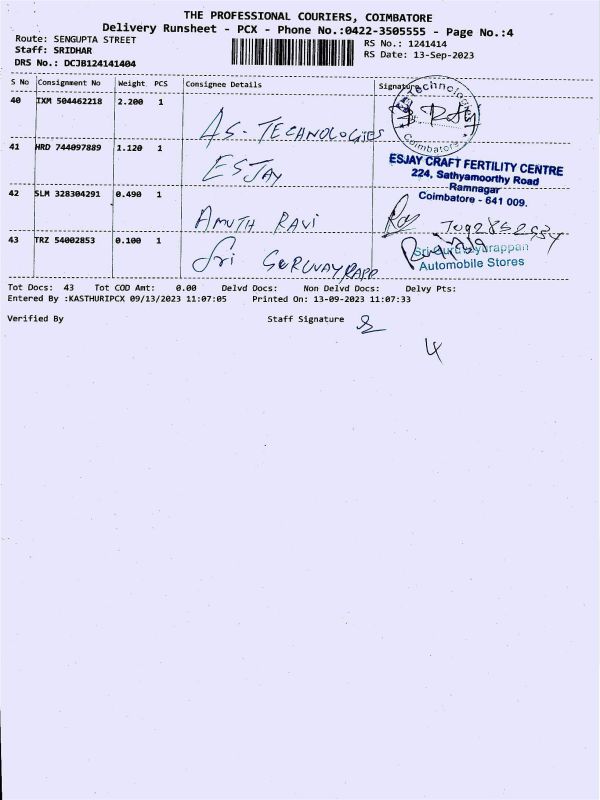 THE PROFESSIONAL COURIERS, COIMBATORE
Delivery Runsheet - PCX - Phone No.:0422-3505555 - Page No.:4
Route: SENGUPTA STREET
RS No.: 1241414
Staff: SRIDHAR
RS Date: 13-Sep-2023
DRS No.: DCJB124141404
S No Consignment No Weight PCS Consignee Details Signature
40 IXM 504462218 2.200 1 AS-TECHNOLOGIES
Coimbatore
41 HRD 744097889 1.120 1 ESJAY
ESJAY CRAFT FERTILITY CENTRE
224, Sathyamoorthy Road
Ramnagar
Coimbatore - 641 009.
42 SLM 328304291 0.490 1 AMUTH RAVI
43 TRZ 54002853 0.100 1 Sri GURUVAYRAPP
Sri Guruvayurappan
Automobile Stores
Tot Docs: 43 Tot COD Amt: 0.00 Delvd Docs: Non Delvd Docs: Delvy Pts:
Entered By :KASTHURIPCX 09/13/2023 11:07:05 Printed On: 13-09-2023 11:07:33
Verified By Staff Signature
4